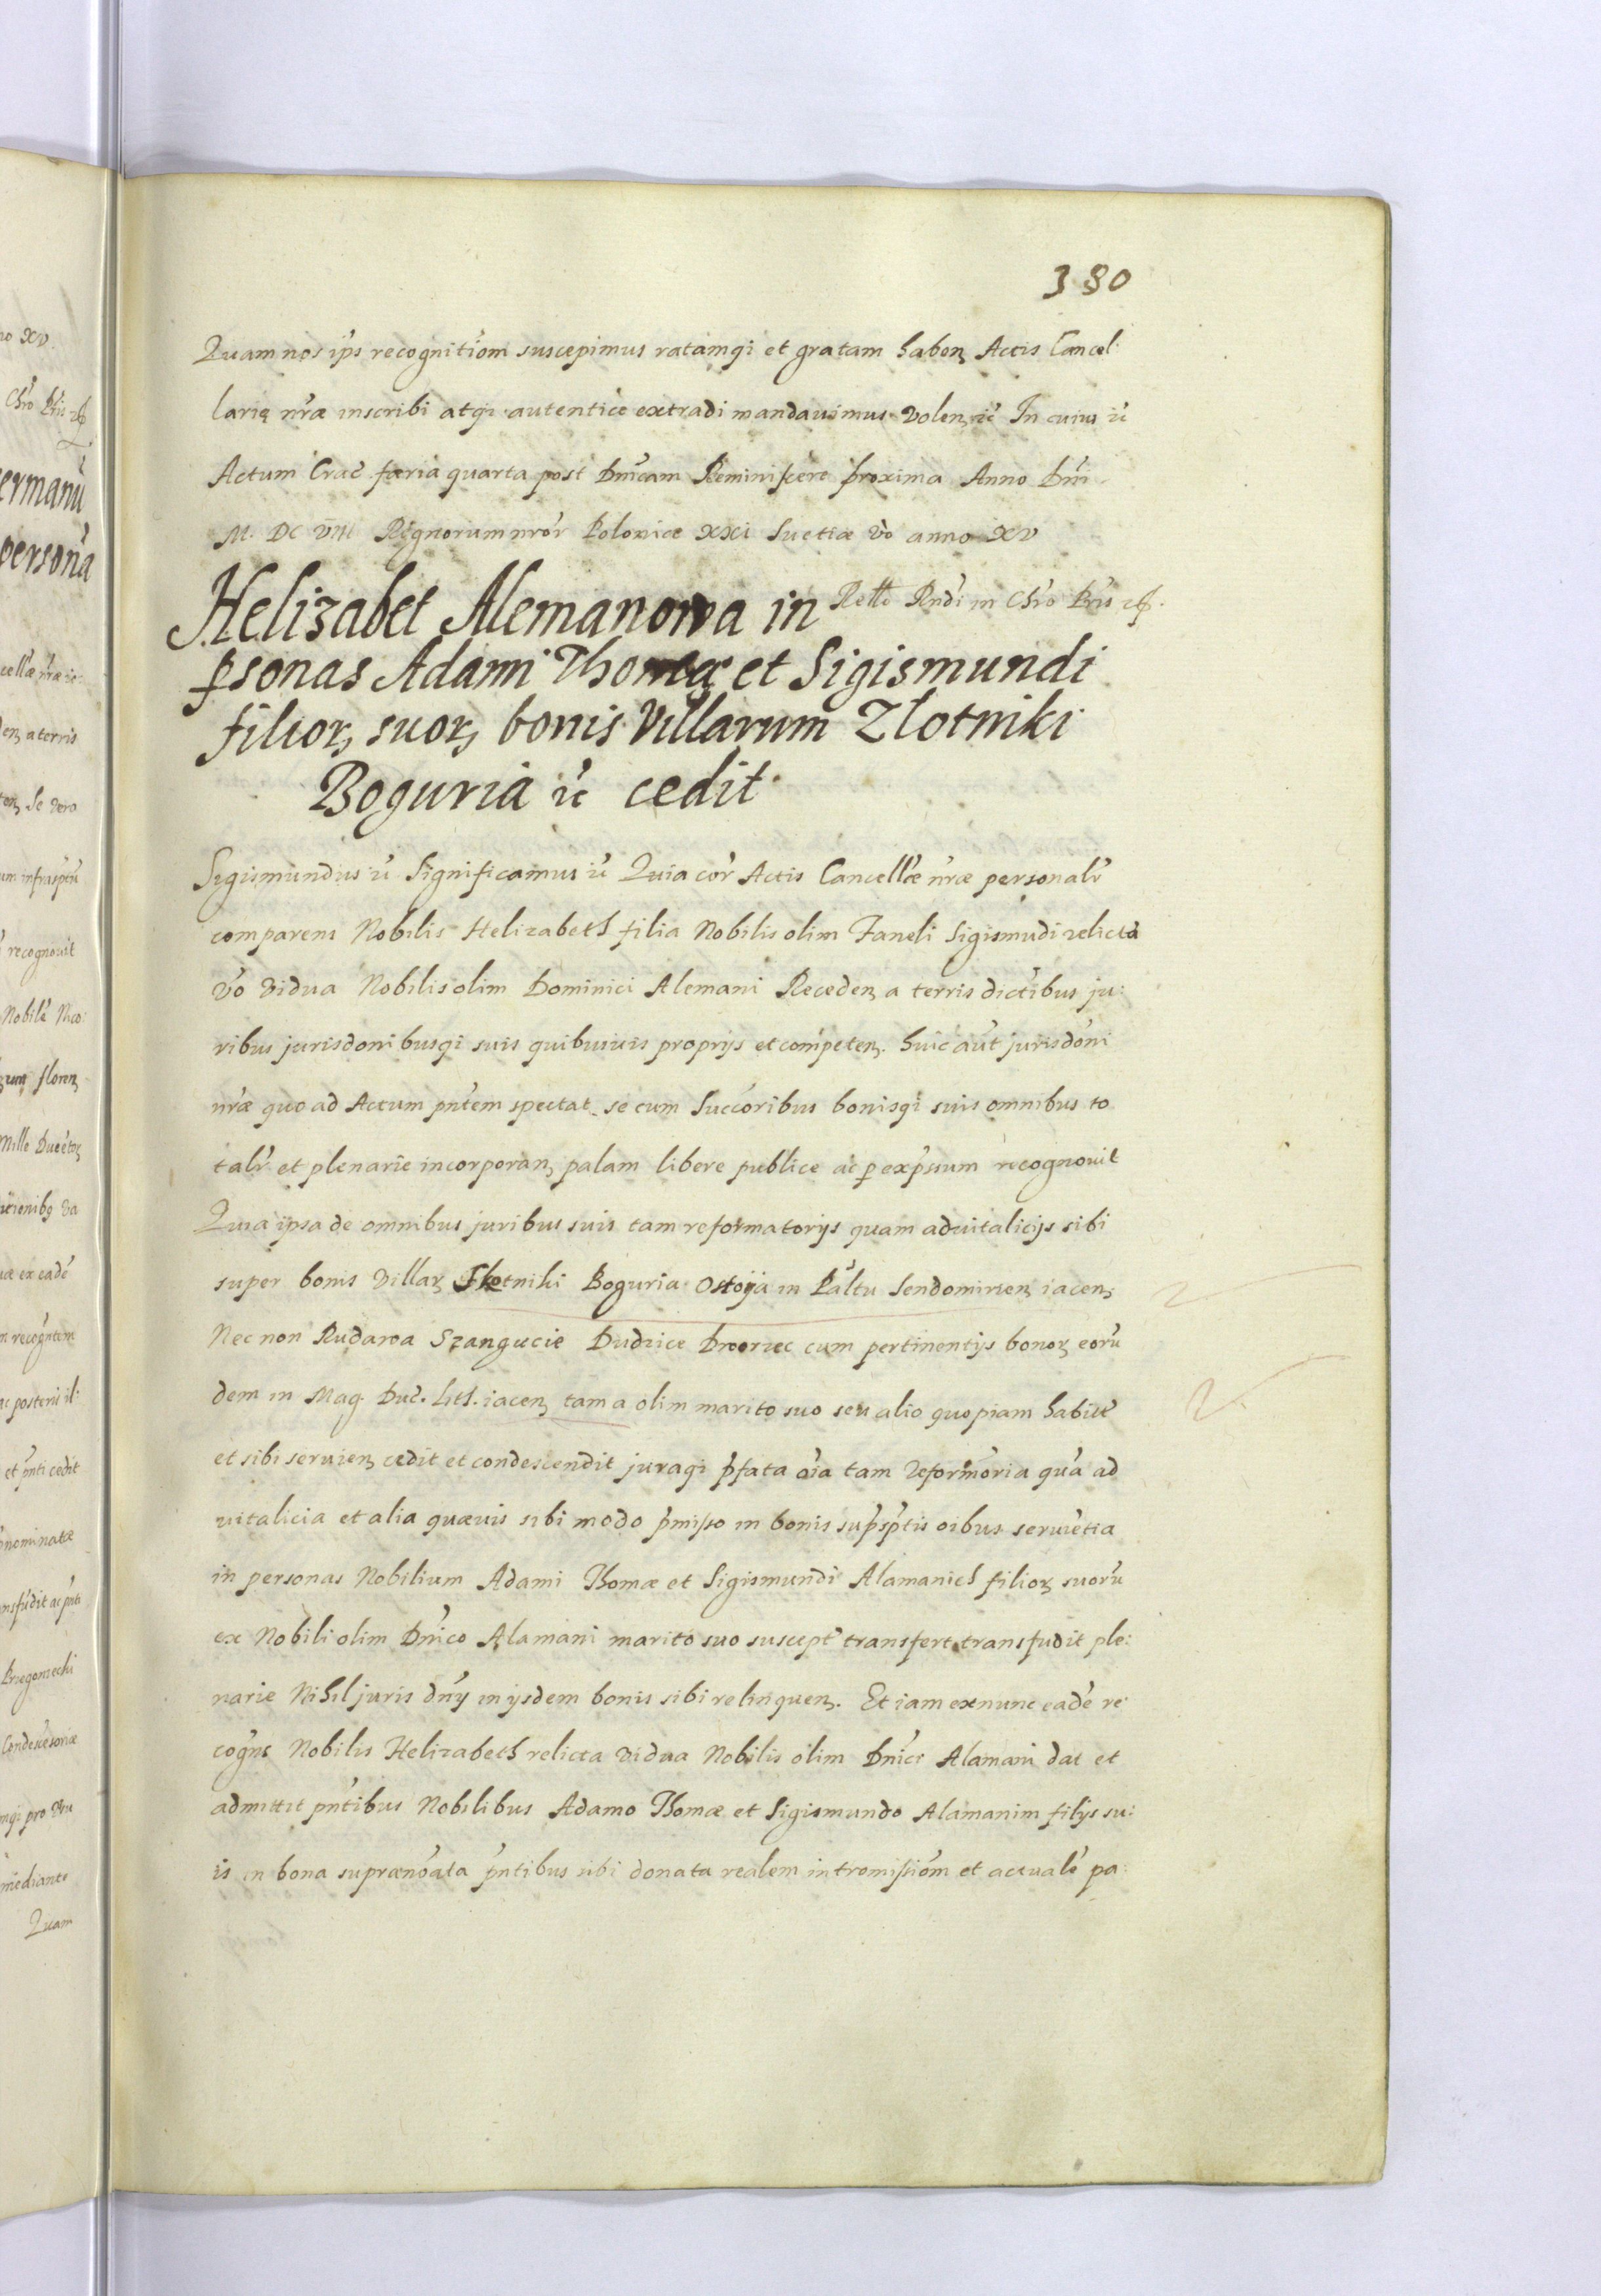 380
Quam nos ips recognitiom suscepimus ratamqi et gratam haben Actis Cancel:
larię nræ inscribi atqi autentice extradi mandavimus volen ić In cuius ić
Actum Crać færia quarta post Dnicam Reminiscere proxima Anno Dni
M. DC VIII Regnorum nror Poloniæ XXI Suetiæ vo anno XV
Helizabet Alemanowa in
Rndi in Chro Pris
psonas Adami Thomæ et Sigismundi
filior suor bonis Villarum Zlotniki
Boguria ić cedit
Sigismundus ić Significamus ić Quia cor Actis Cancellæ nræ personalr
comparens Nobilis Helizabeth filia Nobilis olim Faneli Sigismudi relicta
vo vidua Nobilis olim Dominici Alemani Receden a terris dictibus ju:
ribus jurisdonibusqi suis quibusvis proprijs et competen. huic aut jurisdoni
nræ quo ad Actum pntem spectat se cum Succoribus bonisqi suis omnibus to
talr et plenarie incorporan palam libere publice ac p expssum recognovit
Quia ipsa de omnibus juribus suis tam reformatorijs quam advitalicijs sibi
super bonis villar Boguria Ostoija in Paltu Sendomirien iacen
Nec non Rudawa Szangucie Dudzice Dworzec cum pertinentijs bonor eoru
dem in Mag. Duc. Lith. iacen tam a olim marito suo seu alio quopiam habite
et sibi servien cedit et condescendit juraqi pfata oia tam reformoria qua ad
vitalicia et alia quævis sibi modo pmisso in bonis supsptis oibus servietia
in personas Nobilium Adami Thomæ et Sigismundi Alamanich filior suoru
ex Nobili olim Dnico Alamani marito suo suscept transfert transfudit ple:
narie Nihil juris dny in ijsdem bonis sibi relinquen. Et iam exnunc eade re
cogns Nobilis Helizabeth relicta vidua Nobilis olim Dnici Alamani dat et
admittit pntibus Nobilibus Adamo Thomæ et Sigismundo Alamanim filijs su:
is in bona suprænoata pntibus sibi donata realem intromissiom et actuale pa: